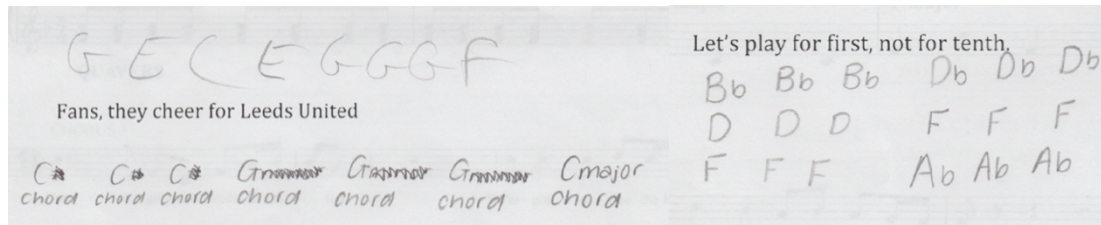 G E C E G G G F
Fans, they cheer for Leeds United
C C C G G G Cmajor
chord chord chord chord chord chord chord
Let's play for first, not for tenth.
Bb Bb Bb Db Db Db
D D D F F F
F F F Ab Ab Ab